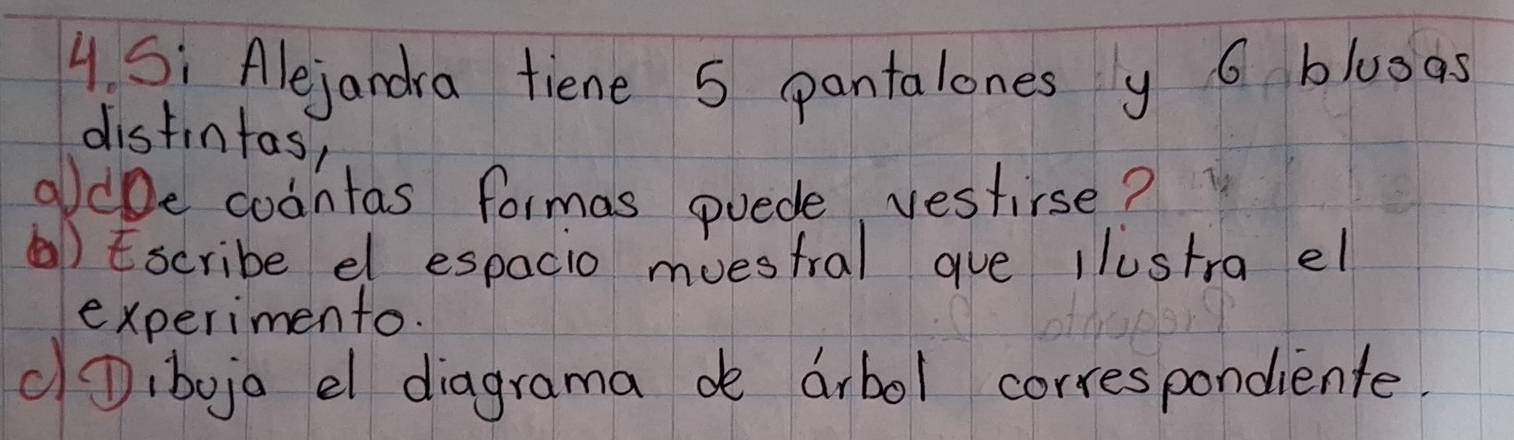 4. Si Alejandra tiene 5 pantalones y 6 blusas
distintas,
a) ¿De cuántas formas puede vestirse?
b) Escribe el espacio muestral que ilustra el
experimento.
c) Dibuja el diagrama de árbol correspondiente.